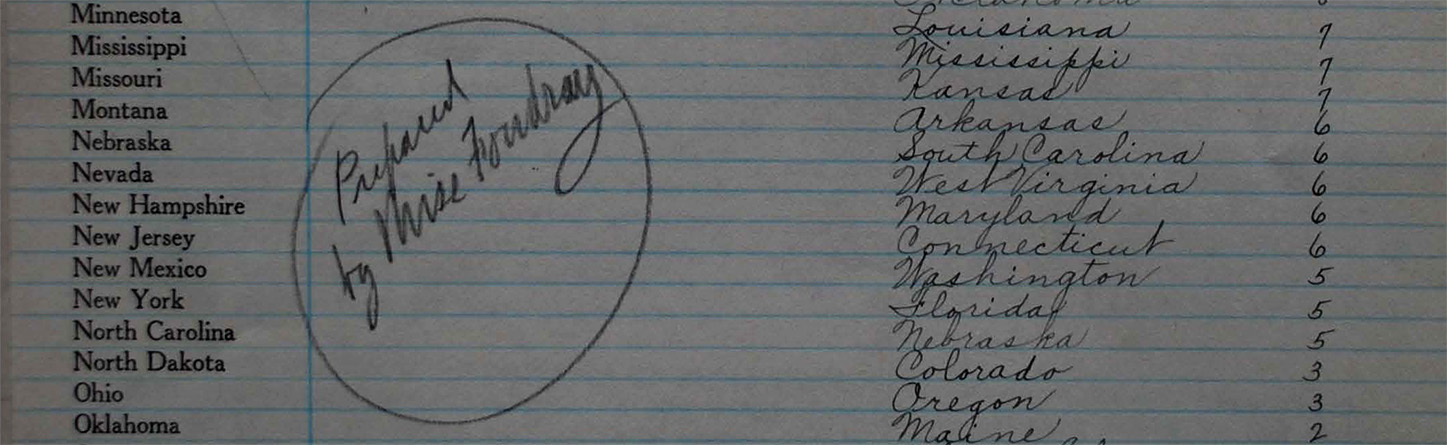 Minnesota
Mississippi
Missouri
Montana
Nebraska
Nevada
New Hampshire
New Jersey
New Mexico
New York
North Carolina
North Dakota
Ohio
Oklahoma
Prepared
by Miss Foudray
Louisiana 7
Mississippi 7
Kansas 7
Arkansas 6
South Carolina 6
West Virginia 6
Maryland 6
Connecticut 6
Washington 5
Florida 5
Nebraska 5
Colorado 3
Oregon 3
Maine 2